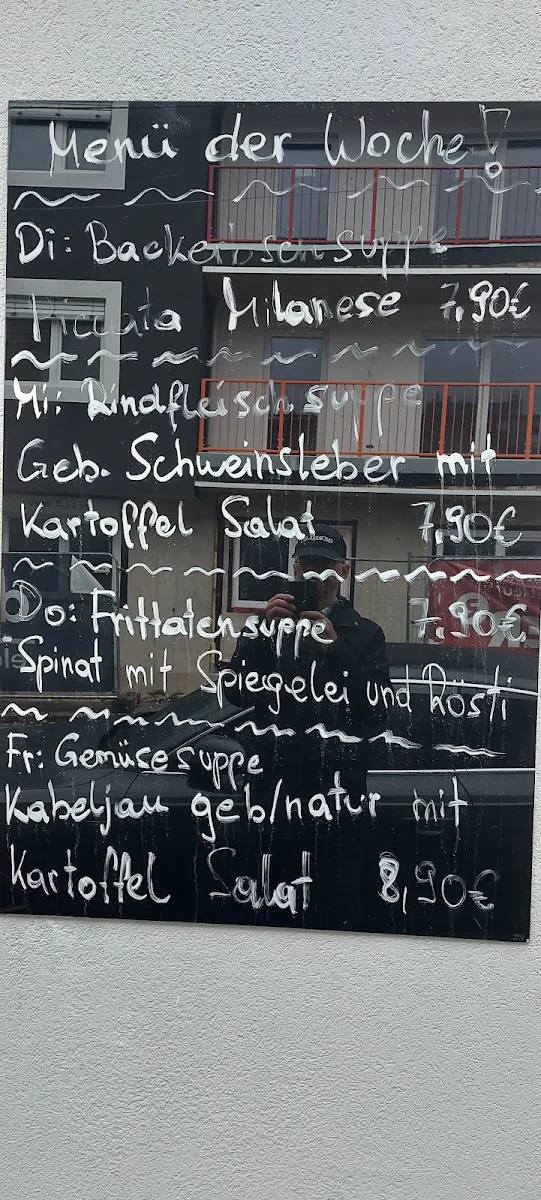 Menü der Woche!
Di: Backerbsensuppe
Piccata Milanese 7,90€
Mi: Rindfleischsuppe
Geb. Schweinsleber mit
Kartoffel Salat 7,90€
Do: Frittatensuppe 7,90€
Spinat mit Spiegelei und Rösti
Fr: Gemüsesuppe
Kabeljau geb/natur mit
Kartoffel Salat 8,90€